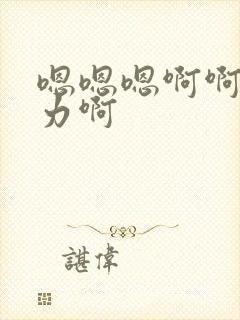 嗯嗯嗯啊啊
力啊
諶偉